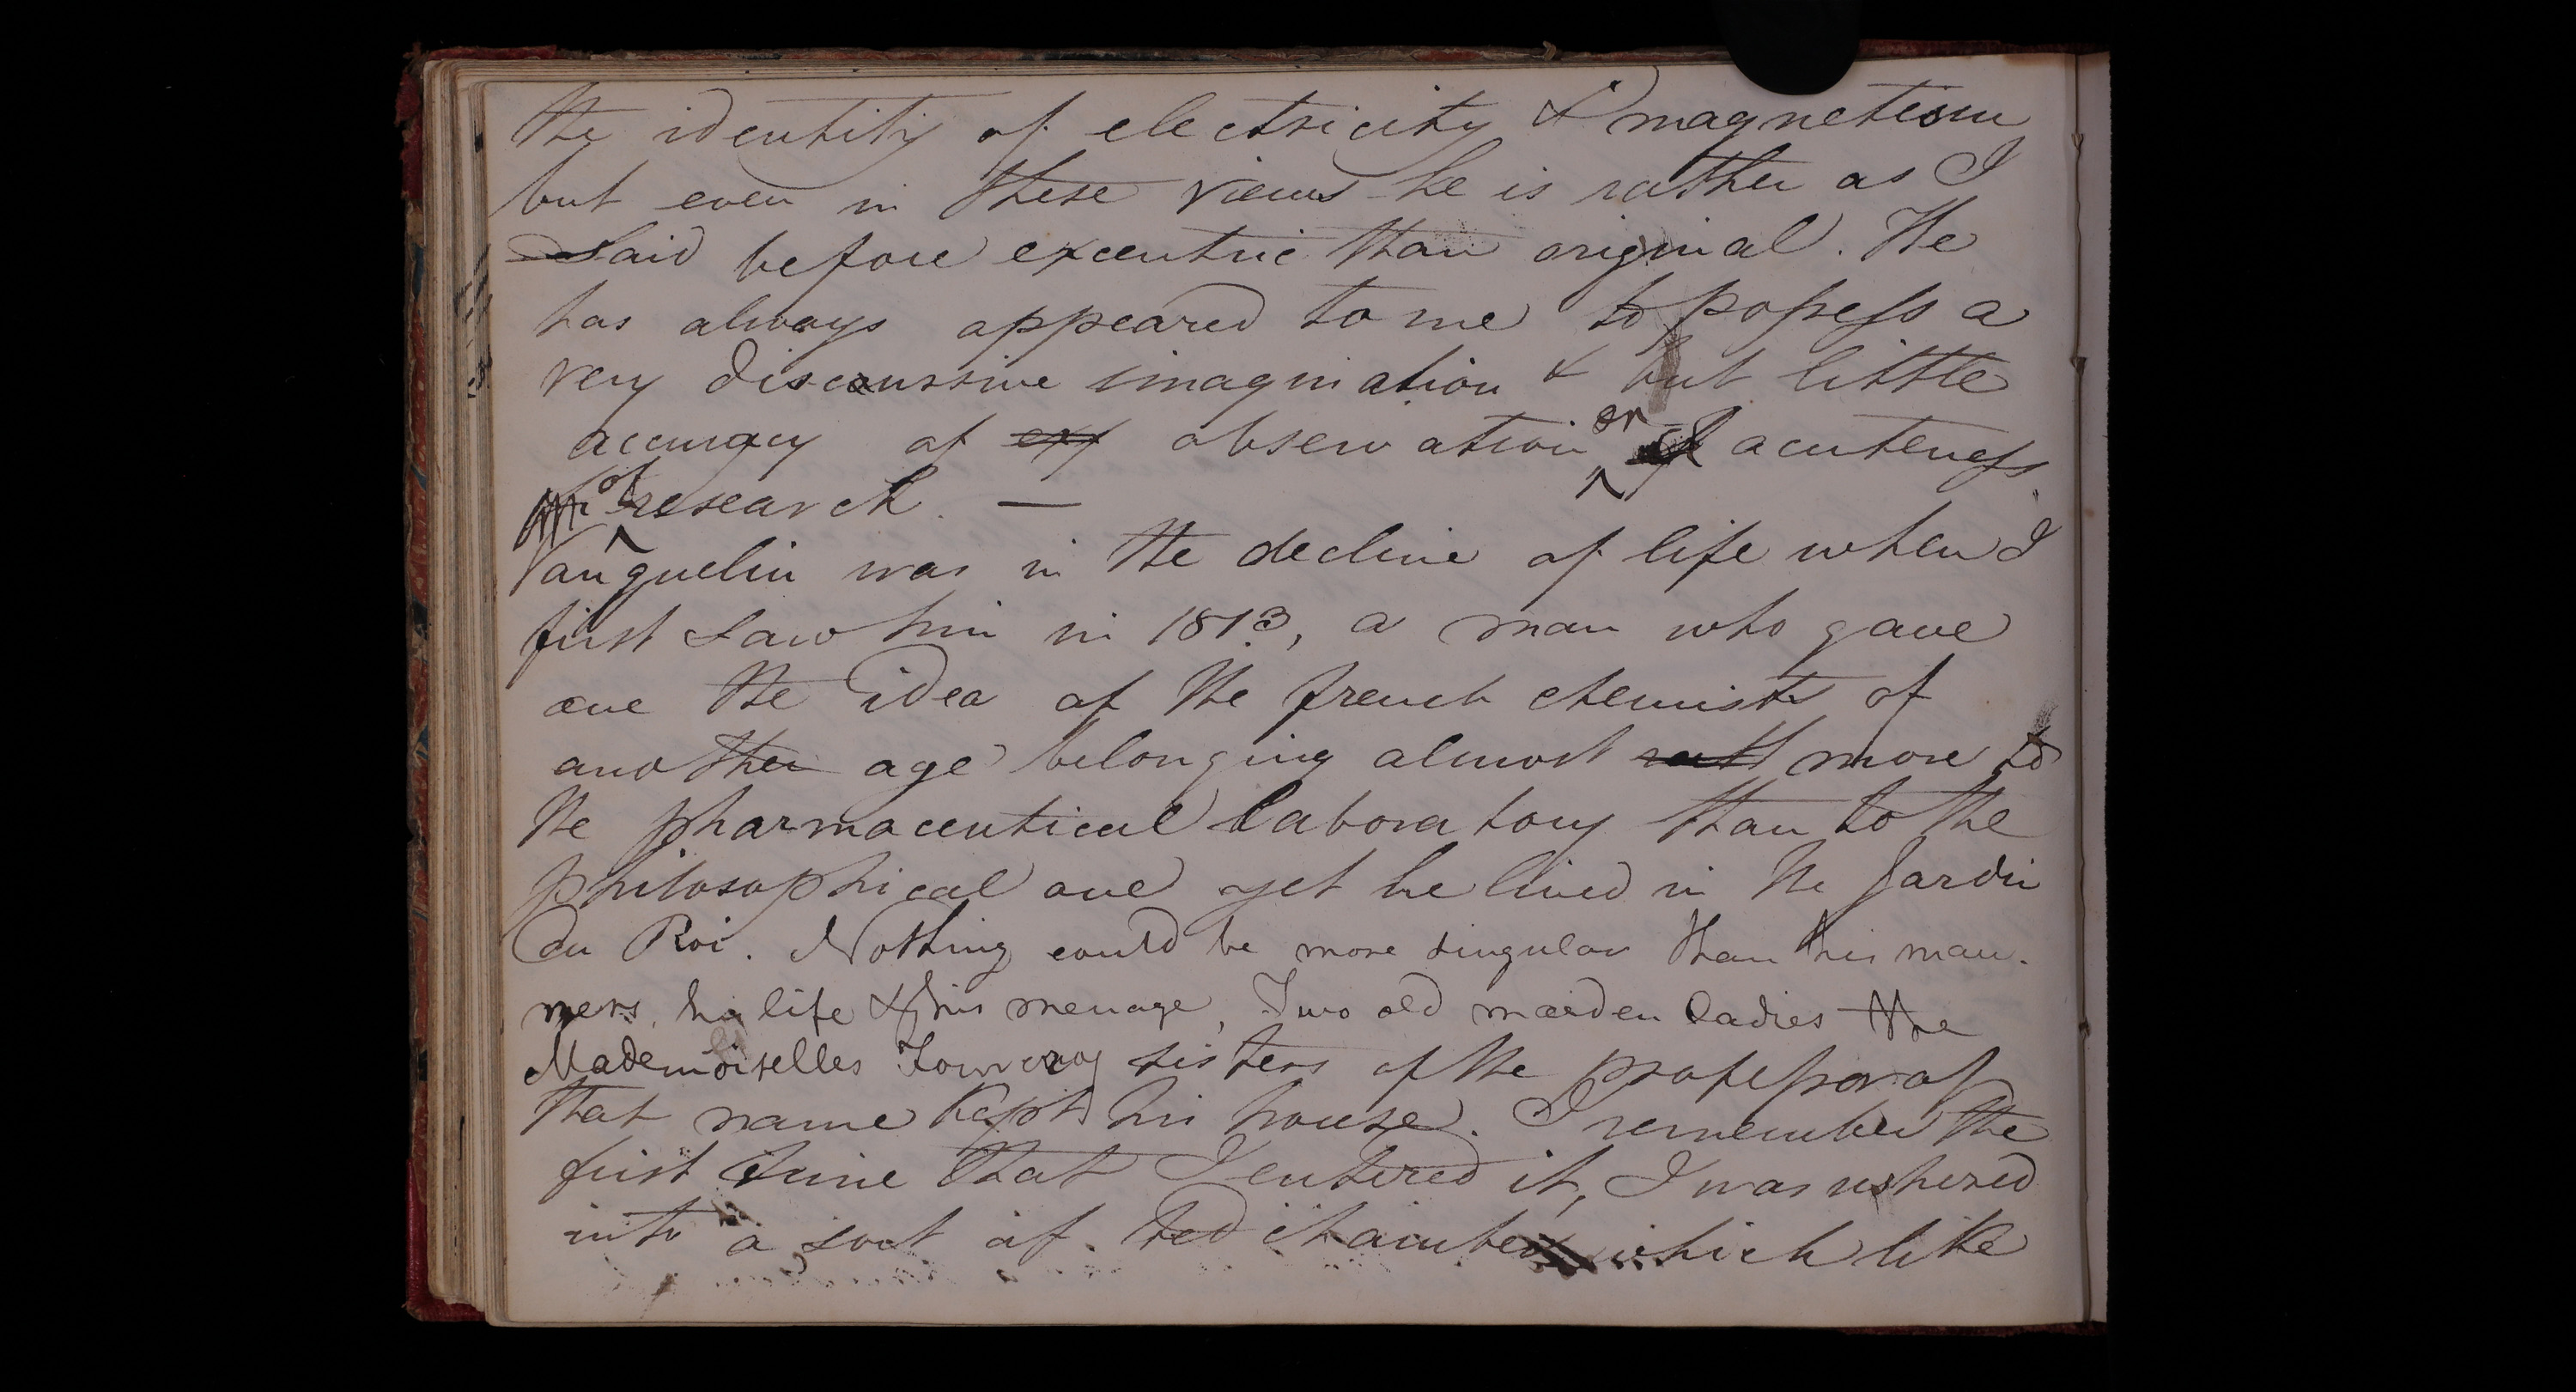 the identity of electricity & magnetism
but even in these views he is rather as I
said before excentric than original. He
has always appeared to me to possess a
very discoursive imagination & but little
accuracy of exp observation or acuteness
of research. —
Vanquelin was in the decline of life when I
first saw him in 1813, a man who gave
one the idea of the french chemists of
another age belonging almost more to
the pharmaceutical laboratory than to the
philosophical one yet he lived in the Jardin
du Roi. Nothing could be more singular than his man-
ners, his life & his menage, Two old maiden ladies the
Mademoiselles Fourcroy sisters of the professor of
that name kept his house. I remember the
first time that I entered it, I was ushered
into a sort of bed chamber which like